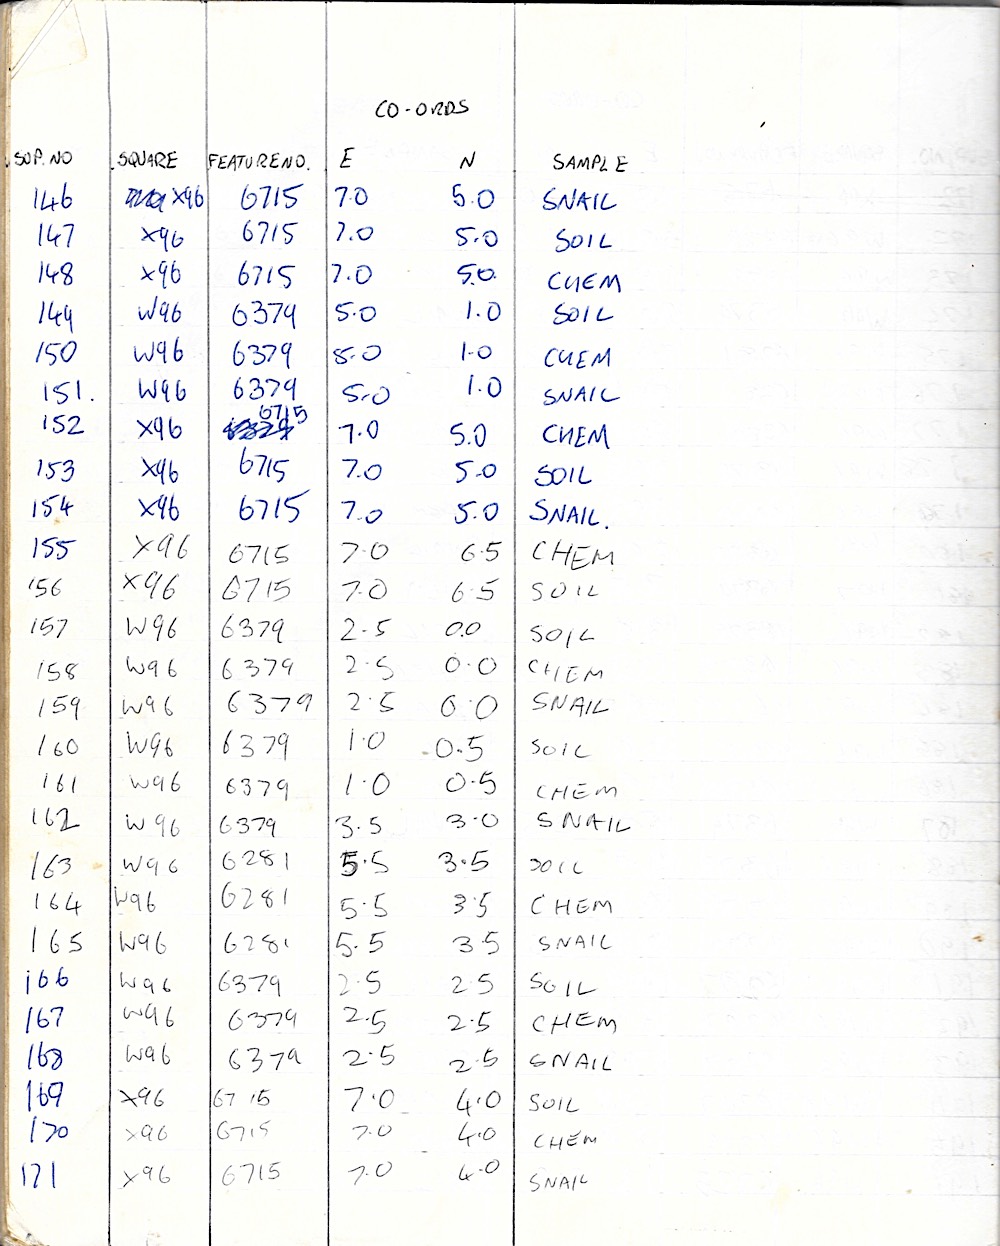 CO-ORDS
SUP. NO SQUARE FEATURE NO. E N SAMPLE
146 X96 6715 7.0 5.0 SNAIL
147 X96 6715 7.0 5.0 SOIL
148 X96 6715 7.0 5.0 CHEM
149 W96 6379 5.0 1.0 SOIL
150 W96 6379 5.0 1.0 CHEM
151. W96 6379 5.0 1.0 SNAIL
152 X96 6715 7.0 5.0 CHEM
153 X96 6715 7.0 5.0 SOIL
154 X96 6715 7.0 5.0 SNAIL.
155 X96 6715 7.0 6.5 CHEM
156 X96 6715 7.0 6.5 SOIL
157 W96 6379 2.5 0.0 SOIL
158 W96 6379 2.5 0.0 CHEM
159 W96 6379 2.5 0.0 SNAIL
160 W96 6379 1.0 0.5 SOIL
161 W96 6379 1.0 0.5 CHEM
162 W96 6379 3.5 3.0 SNAIL
163 W96 6281 5.5 3.5 SOIL
164 W96 6281 5.5 3.5 CHEM
165 W96 6281 5.5 3.5 SNAIL
166 W96 6379 2.5 2.5 SOIL
167 W96 6379 2.5 2.5 CHEM
168 W96 6379 2.5 2.5 SNAIL
169 X96 6715 7.0 4.0 SOIL
170 X96 6715 7.0 4.0 CHEM
171 X96 6715 7.0 4.0 SNAIL